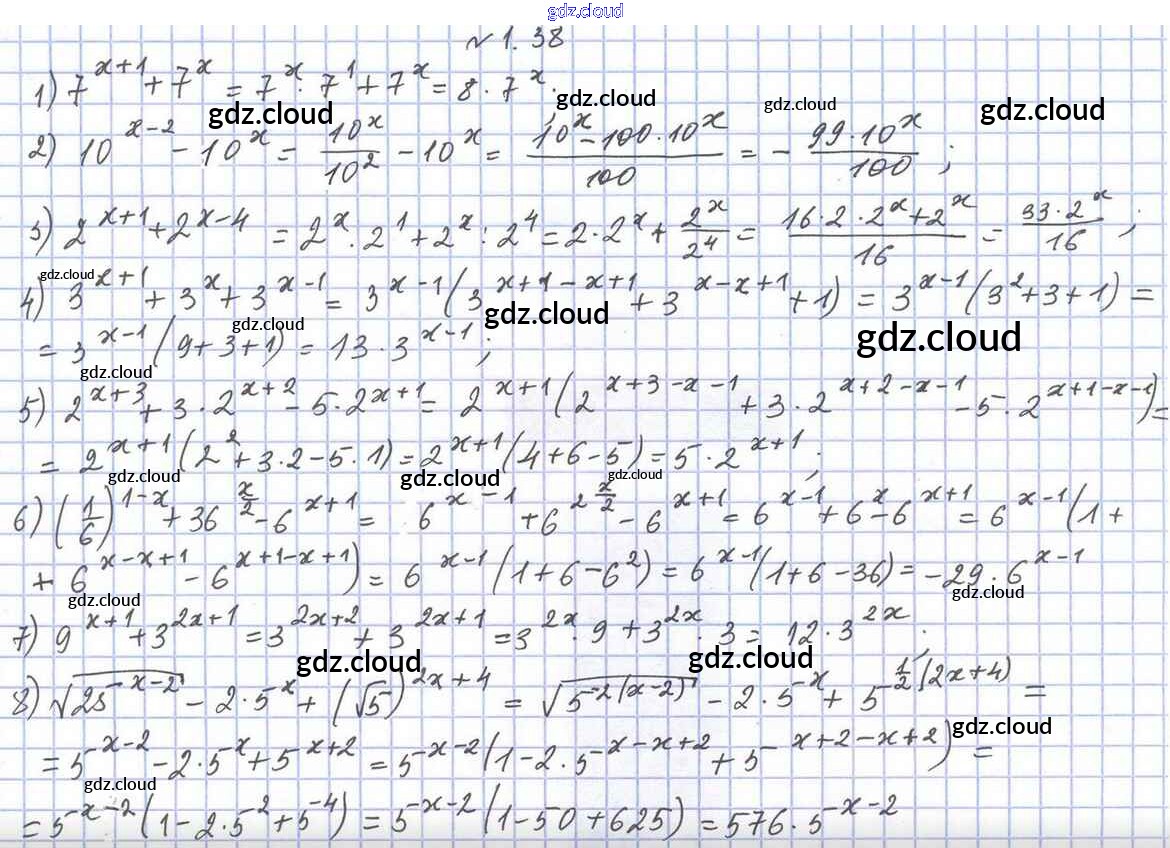 gdz.cloud
№ 1.38
1) 7^{x+1} + 7^x = 7^x · 7^1 + 7^x = 8 · 7^x.
gdz.cloud gdz.cloud gdz.cloud gdz.cloud
2) 10^{x-2} - 10^x = 10^x/10^2 - 10^x = (10^x - 100 · 10^x)/100 = - (99 · 10^x)/100 ;
3) 2^{x+1} + 2^{x-4} = 2^x · 2^1 + 2^x : 2^4 = 2 · 2^x + 2^x/2^4 = (16 · 2 · 2^x + 2^x)/16 = (33 · 2^x)/16 ;
gdz.cloud
4) 3^{x+1} + 3^x + 3^{x-1} = 3^{x-1} (3^{x+1-x+1} + 3^{x-x+1} + 1) = 3^{x-1} (3^2 + 3 + 1) =
gdz.cloud gdz.cloud gdz.cloud
= 3^{x-1} (9 + 3 + 1) = 13 · 3^{x-1} ;
gdz.cloud
5) 2^{x+3} + 3 · 2^{x+2} - 5 · 2^{x+1} = 2^{x+1} (2^{x+3-x-1} + 3 · 2^{x+2-x-1} - 5 · 2^{x+1-x-1}) =
= 2^{x+1} (2^2 + 3 · 2 - 5 · 1) = 2^{x+1} (4 + 6 - 5) = 5 · 2^{x+1} ;
gdz.cloud gdz.cloud gdz.cloud
6) (1/6)^{1-x} + 36^{x/2} - 6^{x+1} = 6^{x-1} + 6^{2 x/2} - 6^{x+1} = 6^{x-1} + 6^x - 6^{x+1} = 6^{x-1} (1 +
+ 6^{x-x+1} - 6^{x+1-x+1}) = 6^{x-1} (1 + 6 - 6^2) = 6^{x-1} (1 + 6 - 36) = -29 · 6^{x-1}
gdz.cloud gdz.cloud
7) 9^{x+1} + 3^{2x+1} = 3^{2x+2} + 3^{2x+1} = 3^{2x} · 9 + 3^{2x} · 3 = 12 · 3^{2x} ;
gdz.cloud gdz.cloud
8) √(25^{-x-2}) - 2 · 5^{-x} + (√5)^{2x+4} = √(5^{-2(x-2)}) - 2 · 5^{-x} + 5^{-1/2(2x+4)} =
gdz.cloud
= 5^{-x-2} - 2 · 5^{-x} + 5^{-x+2} = 5^{-x-2} (1 - 2 · 5^{-x-x+2} + 5^{-x+2-x+2}) =
gdz.cloud
= 5^{-x-2} (1 - 2 · 5^2 + 5^{-4}) = 5^{-x-2} (1 - 50 + 625) = 576 · 5^{-x-2}